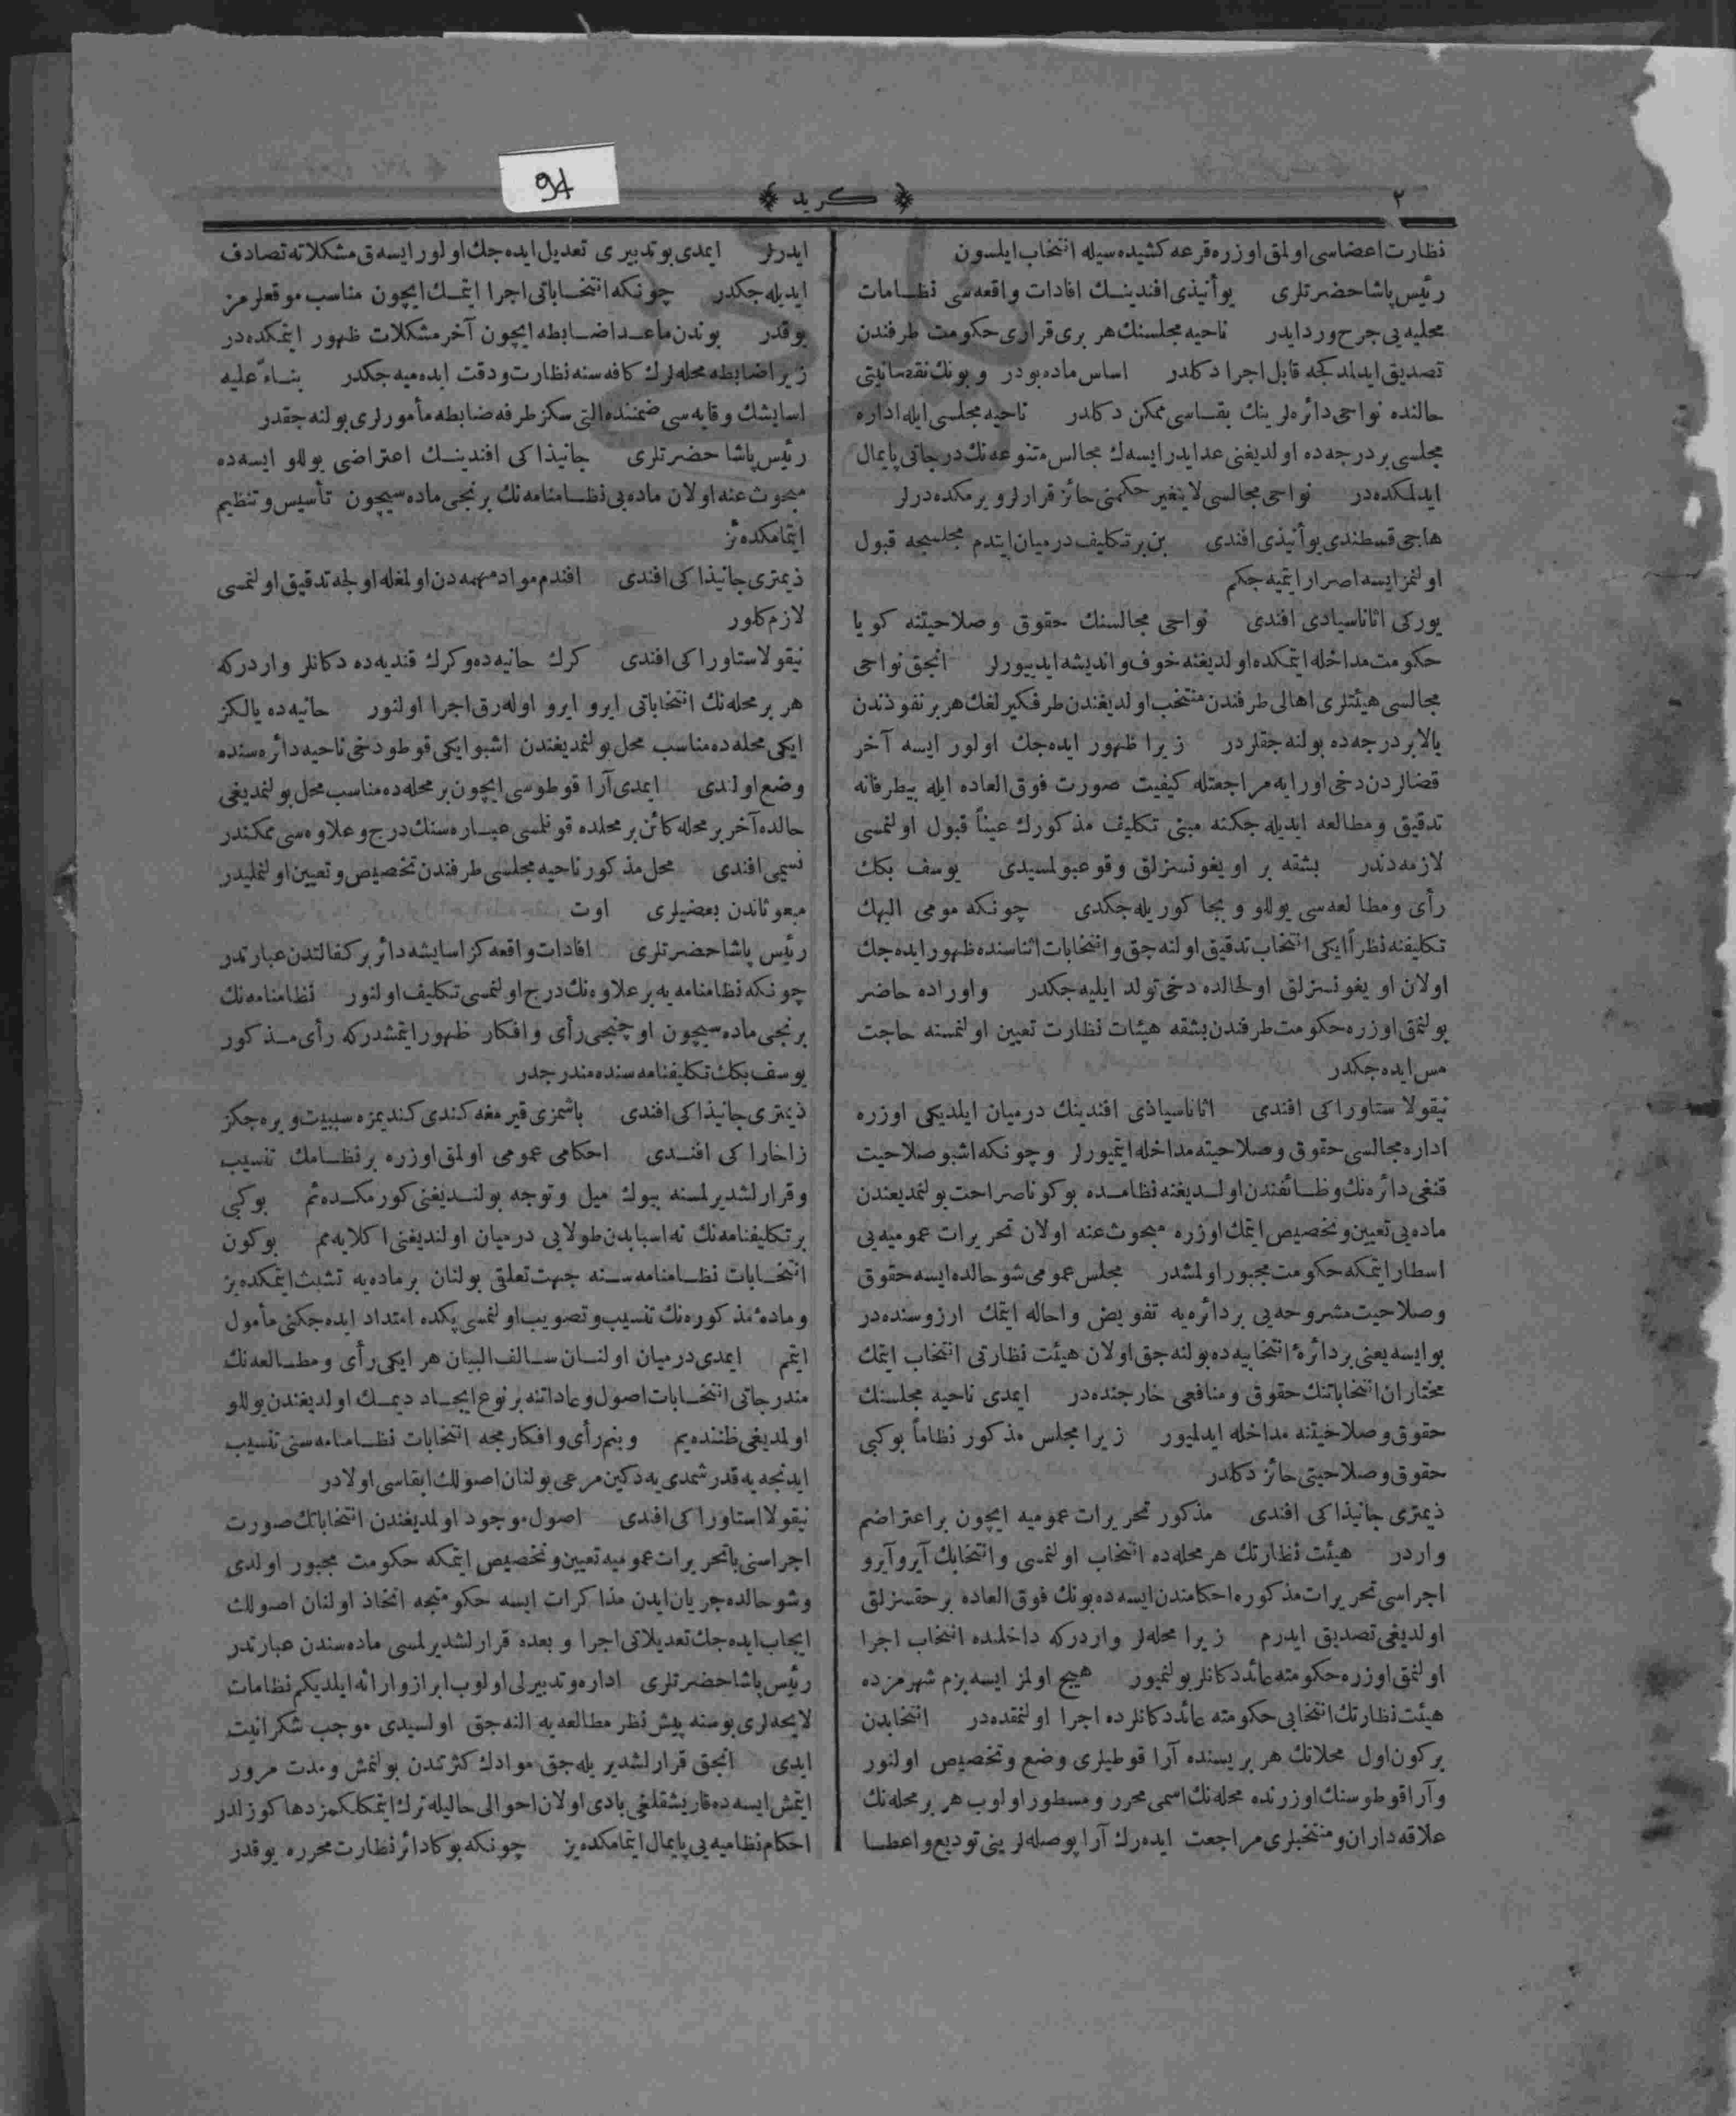 ٢
﴿ كريد ﴾
94
نظارت اعضاسی اولمق اوزره قرعه كشیده سیله انتخاب ایلسون
رئیس پاشا حضرتلری یوآنیذی افندینك افادات واقعه سی نظامات
محلیه یی جرح ورد ایدر ناحیه مجلسنك هر بری قراری حكومت طرفندن
تصدیق ایدلدكجه قابل اجرا دكلدر اساس ماده بودر و بونك نقصانیتی
حالنده نواحی دائره لرینك بقاسی ممكن دكلدر ناحیه مجلسی ایله اداره
مجلسی بر درجه ده اولدیغنی عد ایدر ایسه ك مجالس متنوعه نك درجاتی پایمال
ایدلمكده در نواحی مجالسی لایتغیر حكمنی حائز قرارلر ویرمكده درلر
هاجی قسطندی یوآنیذی افندی بن بر تكلیف درمیان ایتدم مجلسجه قبول
اولنمز ایسه اصرار ایتمیه جكم
یوركی اثاناسیادی افندی نواحی مجالسنك حقوق وصلاحیتنه كویا
حكومت مداخله ایتمكده اولدیغنه خوف واندیشه ایدییورلر انجق نواحی
مجالسی هیئتلری اهالی طرفندن منتخب اولدیغندن طرفكیرلغك هر بر نفوذندن
بالابر درجه ده بولنه جقلردر زیرا ظهور ایده جك اولور ایسه آخر
قضالردن دخی اورایه مراجعتله كیفیت صورت فوق العاده ایله بیطرفانه
تدقیق ومطالعه ایدیله جكنه مبنی تكلیف مذكورك عیناً قبول اولنمسی
لازمه دندر بشقه بر اویغونسزلق وقوعبولمسیدی یوسف بكك
رأی ومطالعه سی یوللو و بجا كوریله جكدی چونكه مومی الیهك
تكلیفنه نظراً ایكی انتخاب تدقیق اولنه جق وانتخابات اثناسنده ظهور ایده جك
اولان اویغونسزلق اولحالده دخی تولد ایلیه جكدر واوراده حاضر
بولنمق اوزره حكومت طرفندن بشقه هیئات نظارت تعیین اولنمسنه حاجت
مس ایده جكدر
نیقولا ستاوراكی افندی اثاناسیاذی افندینك درمیان ایلدیكی اوزره
اداره مجالسی حقوق وصلاحیته مداخله ایتمیورلر وچونكه اشبو صلاحیت
قنغی دائره نك وظائفندن اولدیغنه نظامده بوكونا صراحت بولنمدیغندن
ماده یی تعیین وتخصیص ایتمك اوزره مبحوث عنه اولان تحریرات عمومیه یی
اسطار ایتمكه حكومت مجبور اولمشدر مجلس عمومی شو حالده ایسه حقوق
وصلاحیت مشروحه یی بر دائره یه تفویض واحاله ایتمك ارزوسنده در
بو ایسه یعنی بر دائرهٔ انتخابیه ده بولنه جق اولان هیئت نظارتی انتخاب ایتمك
مختاران انتخاباتنك حقوق ومنافعی خارجنده در ایمدی ناحیه مجلسنك
حقوق وصلاحیتنه مداخله ایدلمیور زیرا مجلس مذكور نظاماً بوكبی
حقوق وصلاحیتی حائز دكلدر
ذیمتری جانیذاكی افندی مذكور تحریرات عمومیه ایچون بر اعتراضم
واردر هیئت نظارتك هر محله ده انتخاب اولنمسی وانتخابك آیرو آیرو
اجراسی تحریرات مذكوره احكامندن ایسه ده بونك فوق العاده بر حقسزلق
اولدیغی تصدیق ایدرم زیرا محله لر واردركه داخلنده انتخاب اجرا
اولنمق اوزره حكومته عائد دكانلر بولنمیور هیچ اولمز ایسه بزم شهرمزده
هیئت نظارتك انتخابی حكومته عائد دكانلرده اجرا اولنمقده در انتخابدن
بر كون اول محلاتك هر بریسنده آرا قوطیلری وضع وتخصیص اولنور
وآرا قوطوسنك اوزرنده محله نك اسمی محرر ومسطور اولوب هر بر محله نك
علاقه داران ومنتخبلری مراجعت ایده رك آرا پوصله لرینی تودیع واعطا
ایدرلر ایمدی بو تدبیری تعدیل ایده جك اولور ایسه ق مشكلاته تصادف
ایدیله جكدر چونكه انتخاباتی اجرا ایتمك ایچون مناسب موقعلرمز
یوقدر بوندن ماعدا ضابطه ایچون آخر مشكلات ظهور ایتمكده در
زیرا ضابطه محله لرك كافه سنه نظارت ودقت ایده میه جكدر بناءً علیه
اسایشك وقایه سی ضمننده التی سكز طرفه ضابطه مأمورلری بولنه جقدر
رئیس پاشا حضرتلری جانیذاكی افندینك اعتراضی یوللو ایسه ده
مبحوث عنه اولان ماده یی نظامنامه نك برنجی ماده سیچون تأسیس وتنظیم
ایتمامكده ئز
ذیمتری جانیذاكی افندی افندم مواد مهمه دن اولمغله اولجه تدقیق اولنمسی
لازم كلور
نیقولا ستاوراكی افندی كرك حانیه ده وكرك قندیه ده دكانلر واردركه
هر بر محله نك انتخاباتی ایرو ایرو اوله رق اجرا اولنور حانیه ده یالكز
ایكی محله ده مناسب محل بولنمدیغندن اشبو ایكی قوطو دخی ناحیه دائره سنده
وضع اولندی ایمدی آرا قوطوسی ایچون بر محله ده مناسب محل بولنمدیغی
حالده آخر بر محله كائن بر محلده قونلمسی عباره سنك درج وعلاوه سی ممكندر
نسیمی افندی محل مذكور ناحیه مجلسی طرفندن تخصیص وتعیین اولنملیدر
مبعوثاندن بعضیلری اوت
رئیس پاشا حضرتلری افادات واقعه كز اسایشه دائر بر كفالتدن عبارتدر
چونكه نظامنامه یه بر علاوه نك درج اولنمسی تكلیف اولنور نظامنامه نك
برنجی ماده سیچون اوچنجی رأی وافكار ظهور ایتمشدركه رأی مذكور
یوسف بكك تكلیفنامه سنده مندرجدر
ذیمتری جانیذاكی افندی باشمزی قیرمغه كندی كندیمزه سببیت ویره جكز
زاخاراكی افندی احكامی عمومی اولمق اوزره بر نظامك تنسیب
وقرارلشدیرلمسنه بیوك میل وتوجه بولندیغنی كورمكده ئم بوكبی
بر تكلیفنامه نك نه اسبابدن طولایی درمیان اولندیغنی اكلایه مم بوكون
انتخابات نظامنامه سنه جهت تعلقی بولنان بر ماده یه تشبث ایتمكده یز
ومادهٔ مذكوره نك تنسیب وتصویب اولنمسی پكده امتداد ایده جكنی مأمول
ایتمم ایمدی درمیان اولنان سالف البیان هر ایكی رأی ومطالعه نك
مندرجاتی انتخابات اصول وعاداتنه بر نوع ایجاد دیمك اولدیغندن یوللو
اولمدیغی ظننده یم وبنم رأی وافكارمجه انتخابات نظامنامه سنی تنسیب
ایدنجه یه قدر شمدی یه دكین مرعی بولنان اصولك ابقاسی اولادر
نیقولا استاوراكی افندی اصول موجود اولمدیغندن انتخاباتك صورت
اجراسنی با تحریرات عمومیه تعیین وتخصیص ایتمكه حكومت مجبور اولدی
وشو حالده جریان ایدن مذاكرات ایسه حكومتجه اتخاذ اولنان اصولك
ایجاب ایده جك تعدیلاتی اجرا و بعده قرارلشدیرلمسی ماده سندن عبارتدر
رئیس پاشا حضرتلری اداره وتدبیرلی اولوب ابراز وارائه ایلدیكم نظامات
لایحه لری بو سنه پیش نظر مطالعه یه النه جق اولسیدی موجب شكرانیت
ایدی انجق قرارلشدیریله جق موادك كثرتندن بولنمش ومدت مرور
ایتمش ایسه ده قاریشقلغی بادی اولان احوالی حالیله ترك ایتمكلكمز دها كوزلدر
احكام نظامیه یی پایمال ایتمامكده یز چونكه بوكا دائر نظارت محرره یوقدر